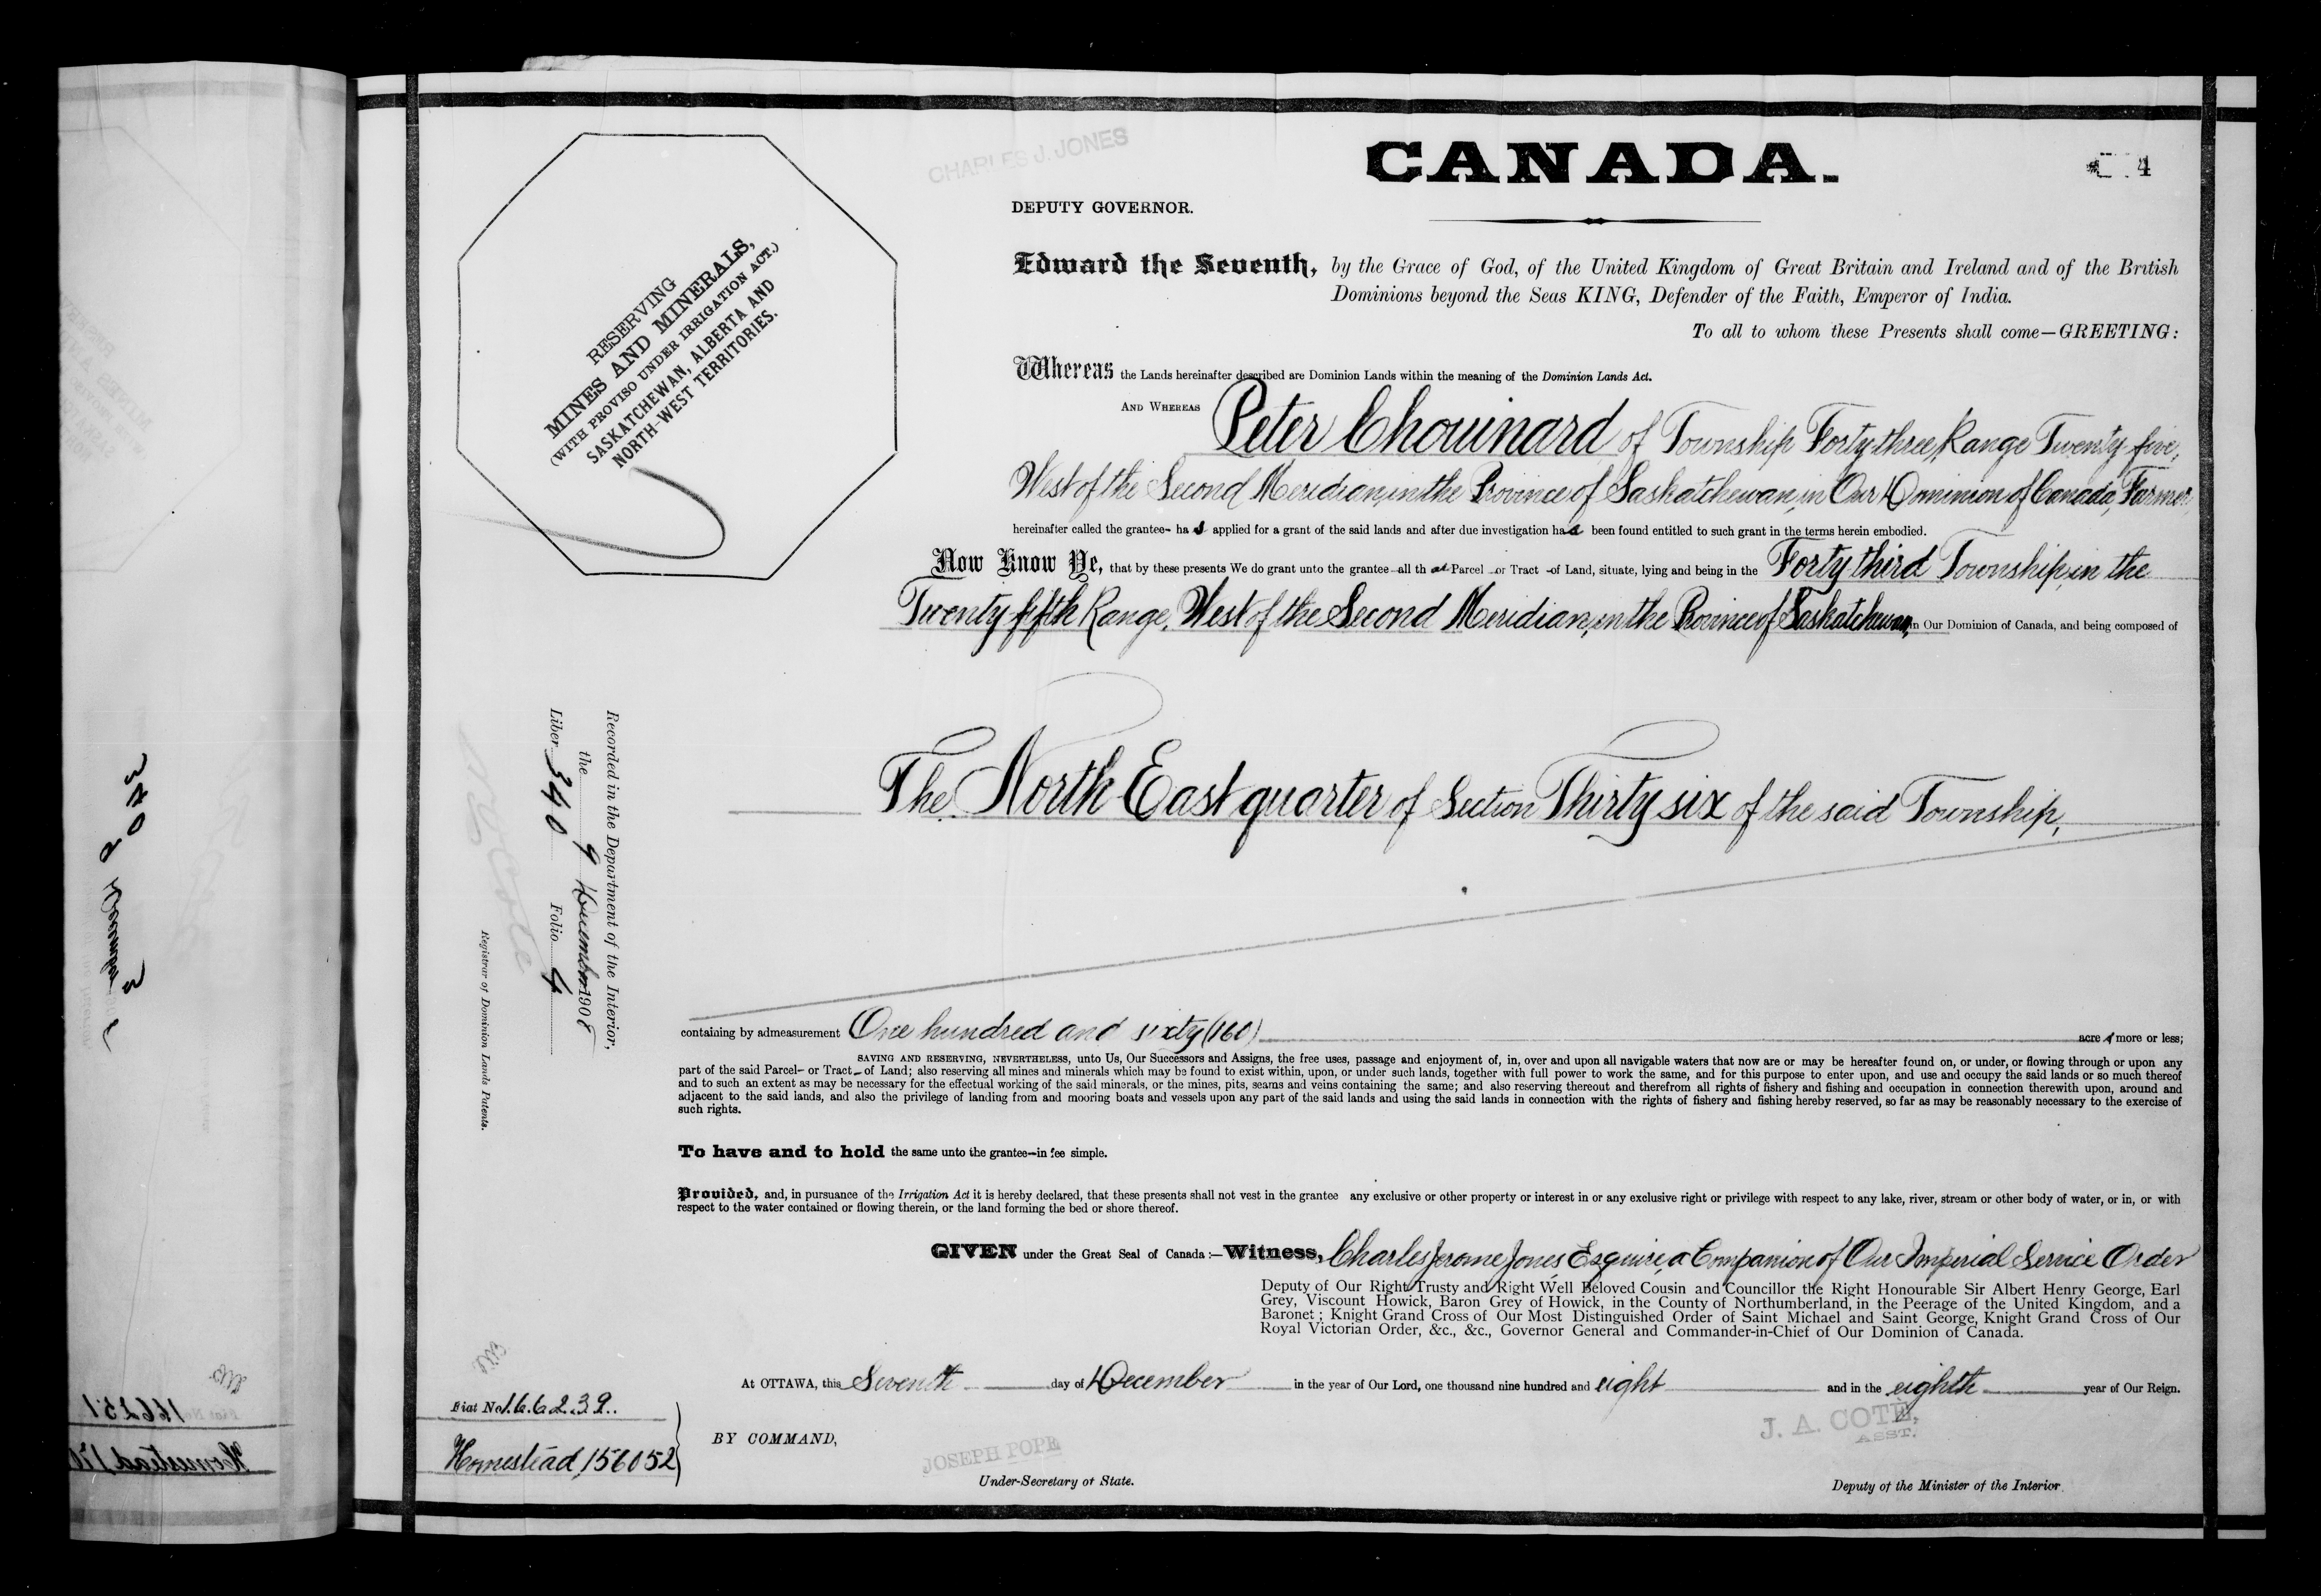 CHARLES J. JONES
CANADA.
4
DEPUTY GOVERNOR.
RESERVING
MINES AND MINERALS,
(WITH PROVISO UNDER IRRIGATION ACT.)
SASKATCHEWAN, ALBERTA AND
NORTH-WEST TERRITORIES.
Edward the Seventh, by the Grace of God, of the United Kingdom of Great Britain and Ireland and of the British
Dominions beyond the Seas KING, Defender of the Faith, Emperor of India.
To all to whom these Presents shall come—GREETING:
Whereas the Lands hereinafter described are Dominion Lands within the meaning of the Dominion Lands Act.
AND WHEREAS Peter Chouinard of Township Forty three, Range Twenty five,
West of the Second Meridian, in the Province of Saskatchewan, in Our Dominion of Canada, Farmer,
hereinafter called the grantee- has applied for a grant of the said lands and after due investigation has been found entitled to such grant in the terms herein embodied.
Now Know Ye, that by these presents We do grant unto the grantee—all that Parcel or Tract of Land, situate, lying and being in the Forty third Township, in the
Twenty fifth Range, West of the Second Meridian, in the Province of Saskatchewan, in Our Dominion of Canada, and being composed of
The North East quarter of Section Thirty six of the said Township,
Recorded in the Department of the Interior,
the 9 December 1908
Liber 340 Folio 4
N G Cote
Registrar of Dominion Lands Patents.
containing by admeasurement One hundred and sixty (160) acres more or less;
SAVING AND RESERVING, NEVERTHELESS, unto Us, Our Successors and Assigns, the free uses, passage and enjoyment of, in, over and upon all navigable waters that now are or may be hereafter found on, or under, or flowing through or upon any
part of the said Parcel- or Tract- of Land; also reserving all mines and minerals which may be found to exist within, upon, or under such lands, together with full power to work the same, and for this purpose to enter upon, and use and occupy the said lands or so much thereof
and to such an extent as may be necessary for the effectual working of the said minerals, or the mines, pits, seams and veins containing the same; and also reserving thereout and therefrom all rights of fishery and fishing and occupation in connection therewith upon, around and
adjacent to the said lands, and also the privilege of landing from and mooring boats and vessels upon any part of the said lands and using the said lands in connection with the rights of fishery and fishing hereby reserved, so far as may be reasonably necessary to the exercise of
such rights.
To have and to hold the same unto the grantee—in fee simple.
Provided, and, in pursuance of the Irrigation Act it is hereby declared, that these presents shall not vest in the grantee any exclusive or other property or interest in or any exclusive right or privilege with respect to any lake, river, stream or other body of water, or in, or with
respect to the water contained or flowing therein, or the land forming the bed or shore thereof.
GIVEN under the Great Seal of Canada :—Witness, Charles Jerome Jones, Esquire, a Companion of Our Imperial Service Order
Deputy of Our Right Trusty and Right Well Beloved Cousin and Councillor the Right Honourable Sir Albert Henry George, Earl
Grey, Viscount Howick, Baron Grey of Howick, in the County of Northumberland, in the Peerage of the United Kingdom, and a
Baronet ; Knight Grand Cross of Our Most Distinguished Order of Saint Michael and Saint George, Knight Grand Cross of Our
Royal Victorian Order, &c., &c., Governor General and Commander-in-Chief of Our Dominion of Canada.
At OTTAWA, this Seventh day of December in the year of Our Lord, one thousand nine hundred and eight and in the eighth year of Our Reign.
Fiat No 166239.
Homestead 156052
BY COMMAND,
JOSEPH POPE
Under-Secretary of State.
J. A. COTÉ,
ASST.
Deputy of the Minister of the Interior
340
9 December
3
166251
Homestead